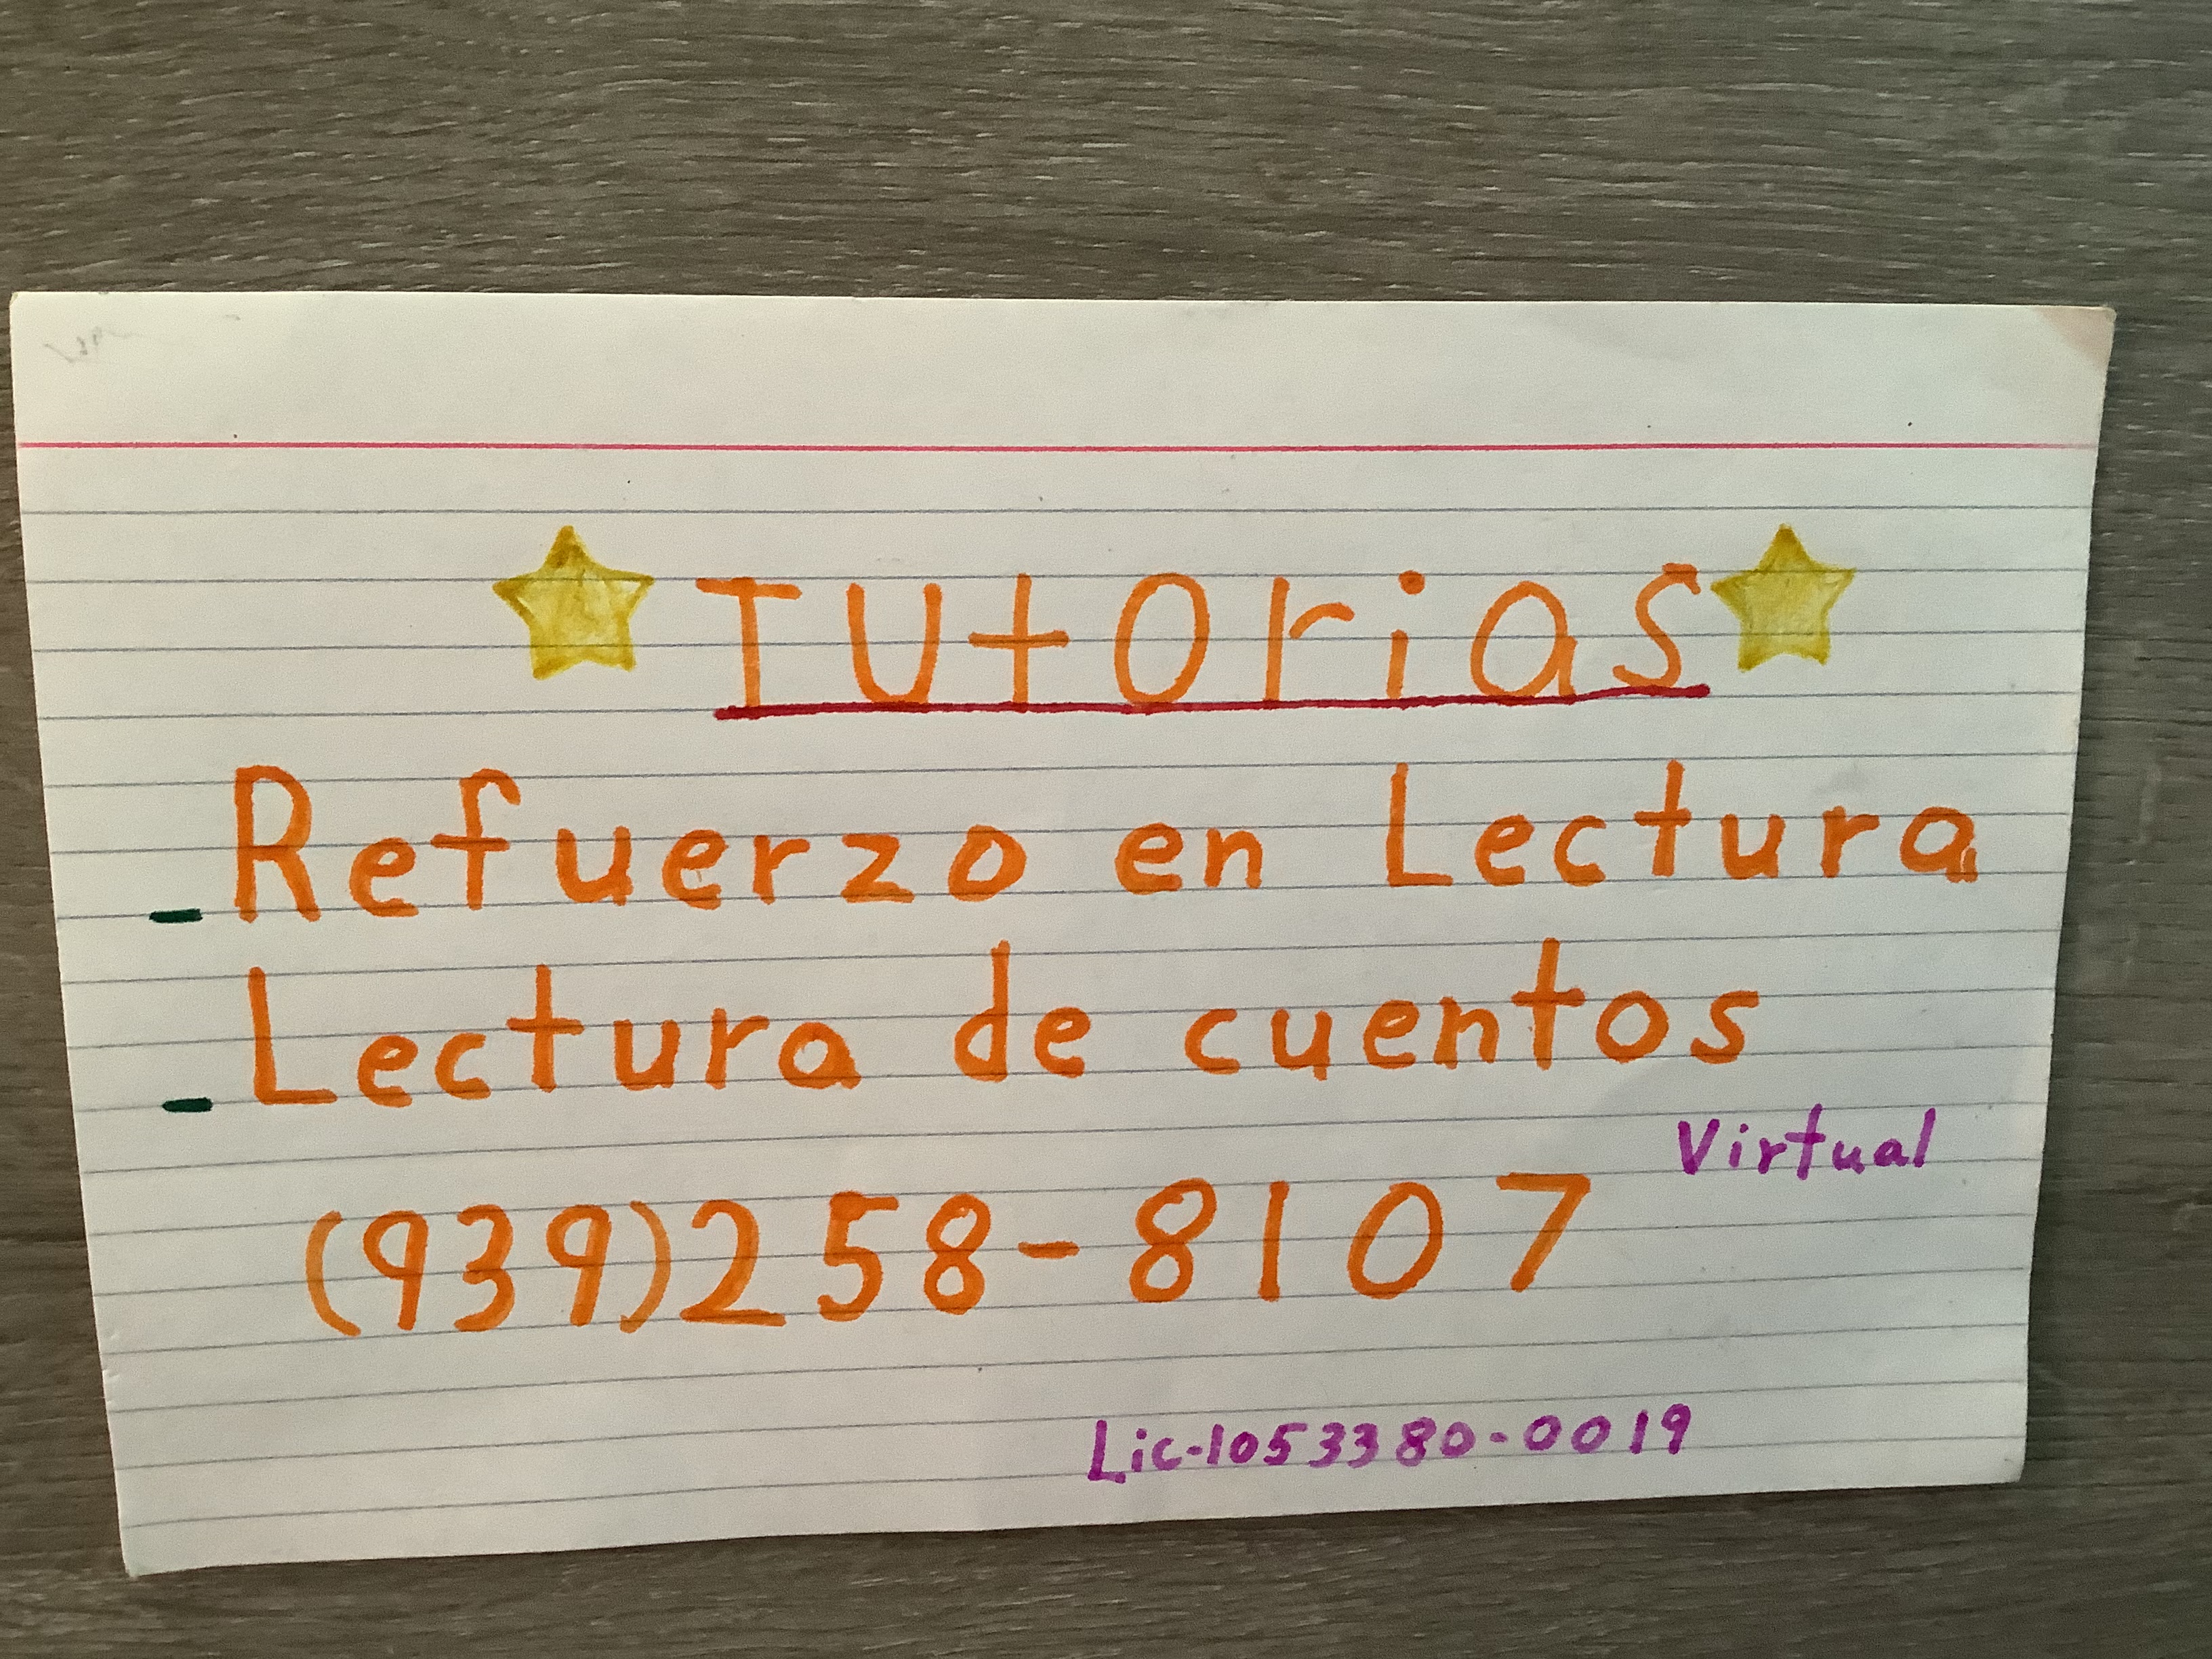 Tutorias
- Refuerzo en Lectura
- Lectura de cuentos
Virtual
(939)258-8107
Lic-1053380-0019